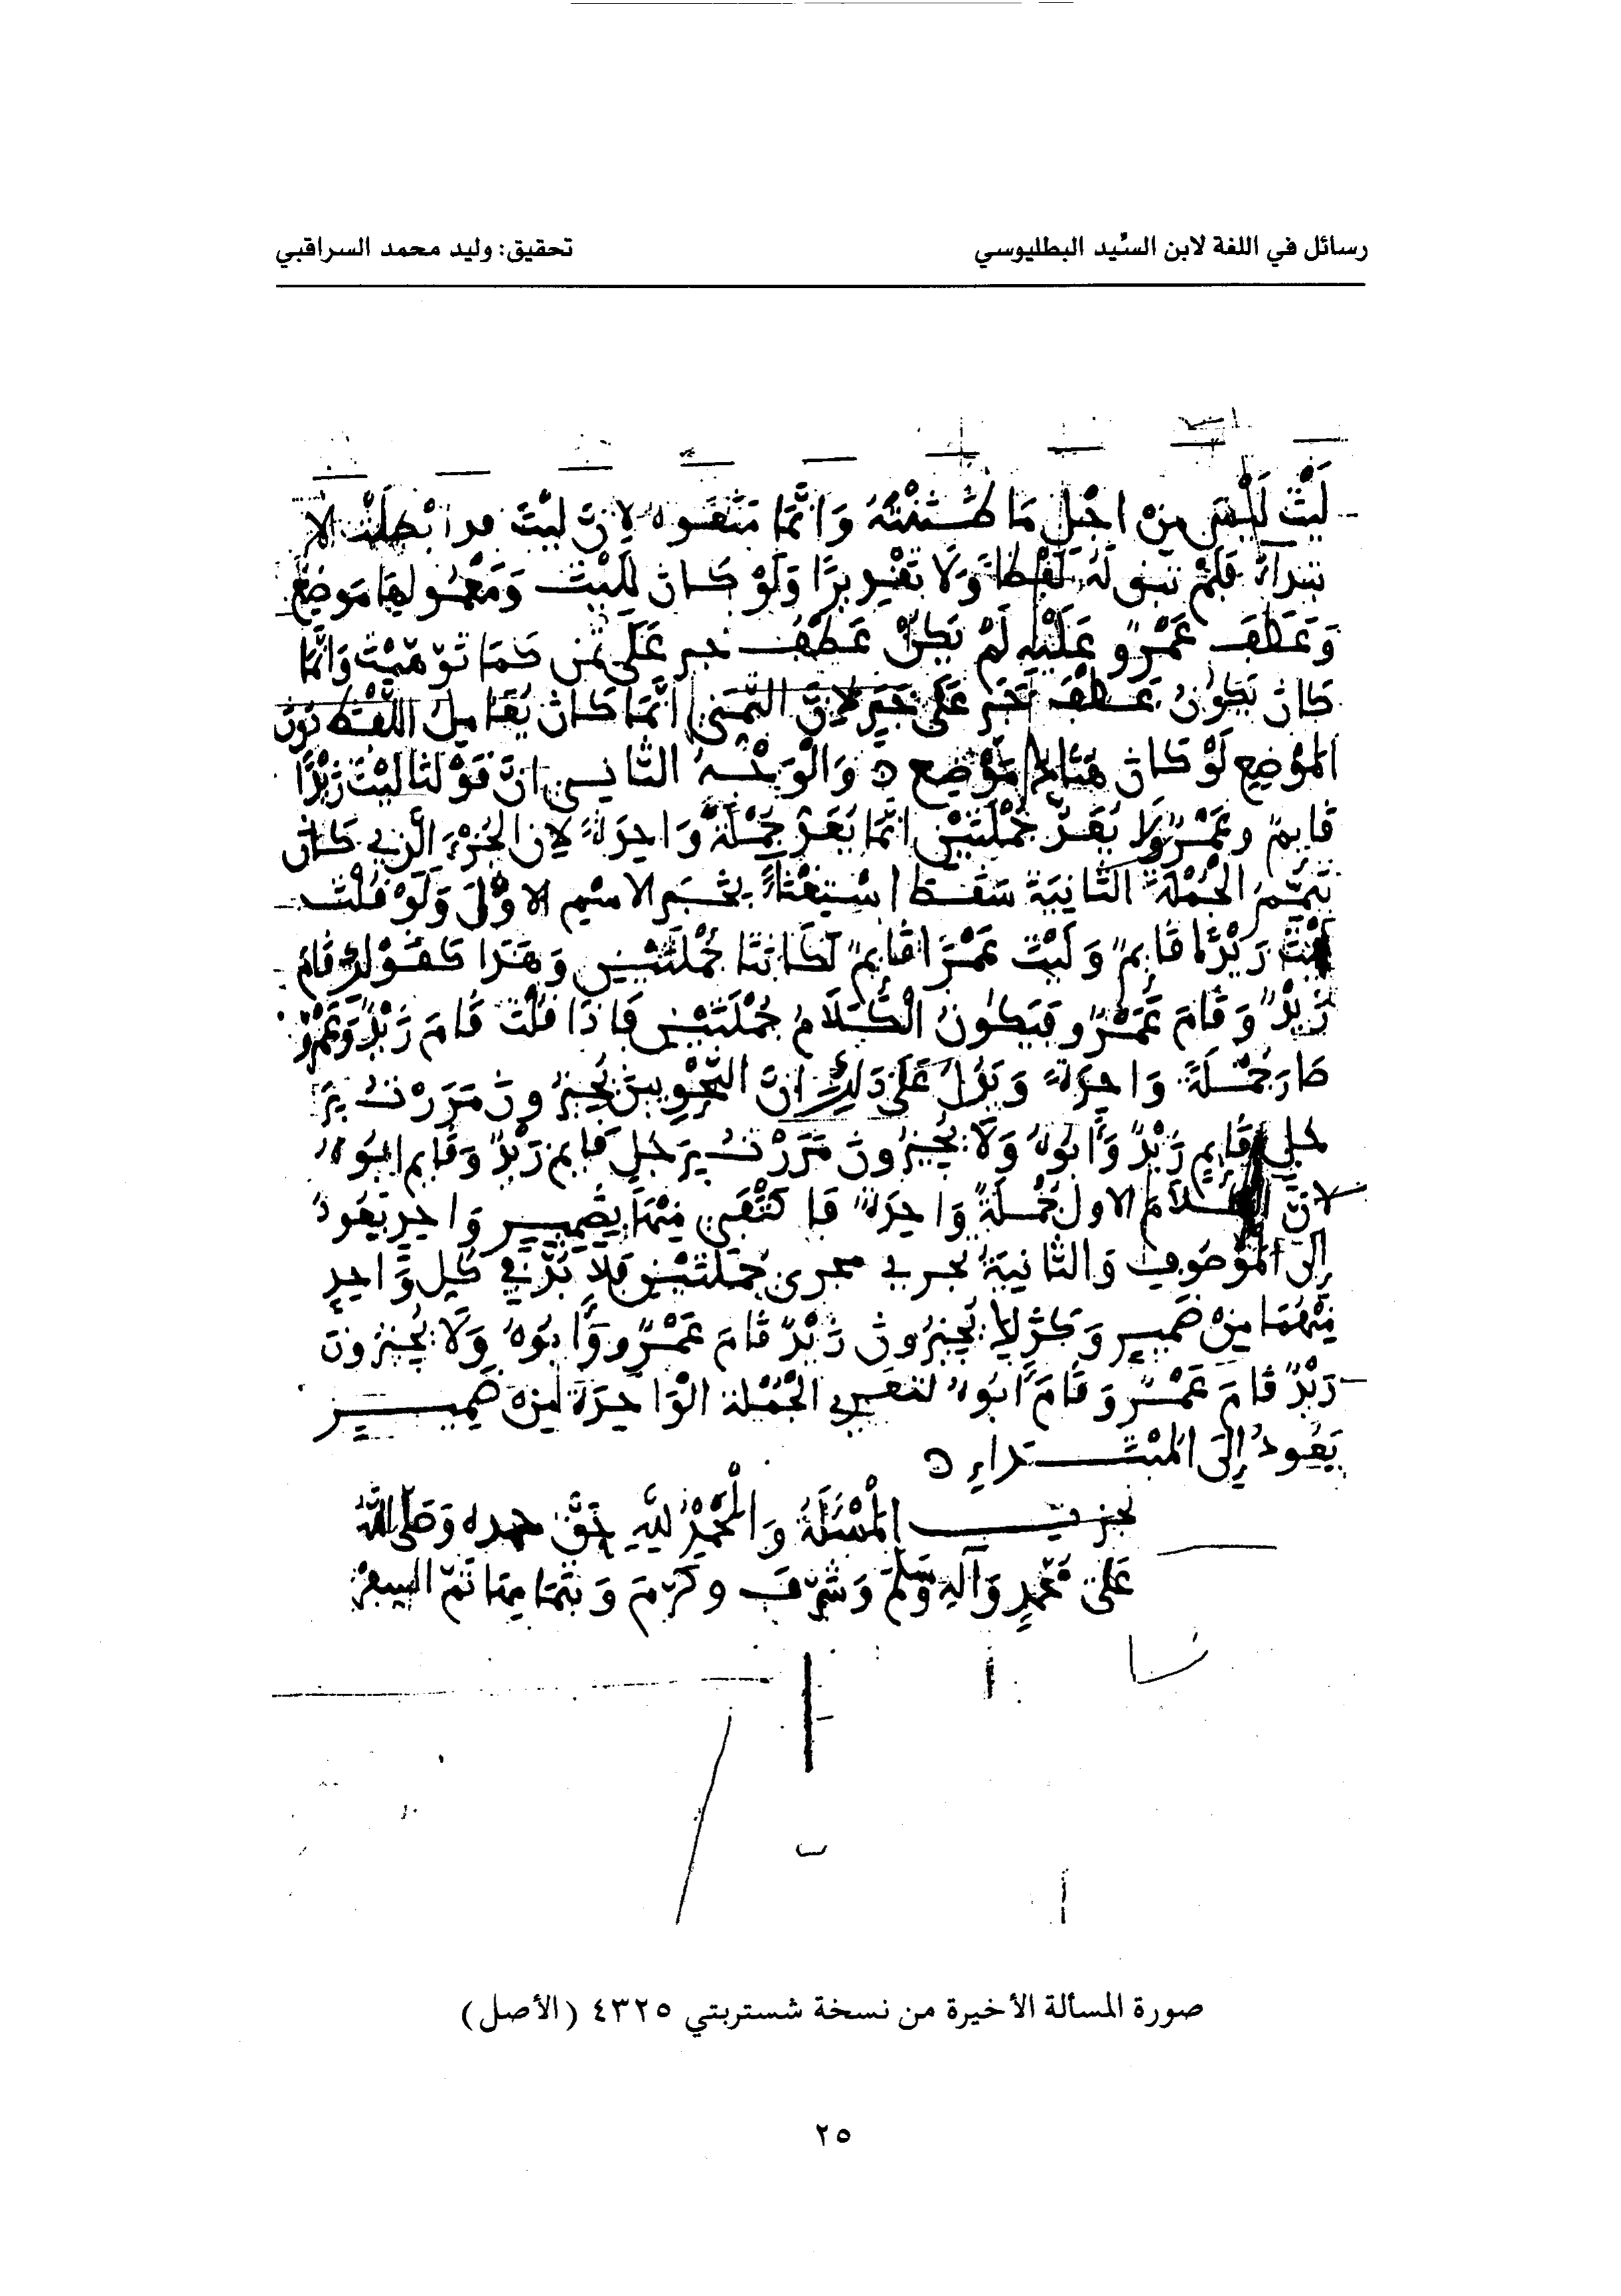 رسائل في اللغة لابن السِّيد البطليوسي
تحقيق: وليد محمد السراقبي
لَيْتَ لَيْسَ مِنْ اجْلِ مَا ظَنَنْتَهُ وَانَّمَا مَنَعُوهُ لِانَّ لَيْتَ قد ابْطَلَت الا
بتداءَ فَلَمْ يَبق لَهُ لَفْظاً وَلَا تَقْدِيرًا وَلَوْ كَانَ لِلَيْتَ وَمَعْمُولِهَا مَوضِعٌ
وَعَطَفَ عَمْرٌو عَلَيْهِ لَمْ يَكُنْ عَطْفَ خبر عَلَى تَمَن كَمَا تَوَهَّمْتَ وَانَّمَا
كَانَ يَكُونُ عَطْفَ خَبَرٍ عَلَى خَبَرٍ لِانَّ التَّمَنّي انَّمَا كَانَ يُعَامِلُ اللَّفْظَ دُونَ
الْمَوْضِعِ لَوْ كَانَ هُنَالِكَ مَوْضِع ه وَالْوَجْهُ الثانِي انَّ قَوْلَنَا لَيْتَ زَيْدًا
قَايِمٌ وعَمْرٌو لَا يُعَدُّ جُمْلَتَيْنِ انَّمَا يُعَدُّ جُمْلَةً وَاحِدَةً لِانَّ الْجُزْءَ الَّذِي كَانَ
تَتِمُّ الْجُمْلَةُ الثَّانِيَةُ سَقَطَ اسْتِغْنَاءً بِخَبَرِ الاسْمِ الاوَّلِ وَلَوْ قُلْتَ
لَيْتَ زَيْدًا قَايِمٌ وَلَيْتَ عَمْرًا قَايِمٌ لَكَانَتَا جُمْلَتَيْنِ وَهَذَا كَقَوْلِكَ قَامَ
زَيْدٌ وَقَامَ عَمْرٌو فَيَكُونُ الْكَلَامُ جُمْلَتَيْنِ فَاذَا قُلْتَ قَامَ زَيْدٌ وَعَمْرٌو
صَارَ جُمْلَةً وَاحِدَةً وَيَدُلُّ عَلَى ذَلِكَ انَّ النَّحْوِيينَ يُجِيزُونَ مَرَرْتُ بِرَ
جُلٍ قَايِمٍ زَيْدٌ وَأَبُوهُ وَلَا يُجِيزُونَ مَرَرْتُ بِرَجُلٍ قَايِمٍ زَيْدٌ وَقَايِم ابُوهُ
لانَّ الكَلَامَ الاول جُمْلَةٌ وَاحِدَةٌ فَاكْتُفِيَ مِنْهَا بِضَمِيرٍ وَاحِدٍ يَعُودُ
إِلَى الْمَوْصُوفِ وَالثَّانِيَةُ تجري مجرى جُمْلَتَيْنِ فَلَا بُدَّ فِي كُلِّ وَاحِدٍ
مِنْهُمَا مِنْ ضَمِيرٍ وَكَذَلِكَ يُجِيزُونَ زَيْدٌ قَامَ عَمْرٌو وَأَبُوهُ وَلَا يُجِيزُونَ
زَيْدٌ قَامَ عَمْرٌو وَقَامَ أَبُوهُ لتعري الْجُمْلَة الْوَاحِدَة مِنْ ضَمِيرٍ
يَعُودُ إِلَى الْمُبْتَدَاءِ ه
نجزت الْمَسْئَلَةُ وَالْحَمْدُ لِلَّهِ حَقَّ حمده وَصَلَّى اللَّهُ
عَلَى مُحَمَّدٍ وَآلِهِ وَسَلَّمَ وَشَرَّفَ وَكَرَّمَ وَبِتَمَامِهَا تَمَّ السِّفْرُ
صورة المسألة الأخيرة من نسخة شستربتي ٤٣٢٥ (الأصل)
٢٥